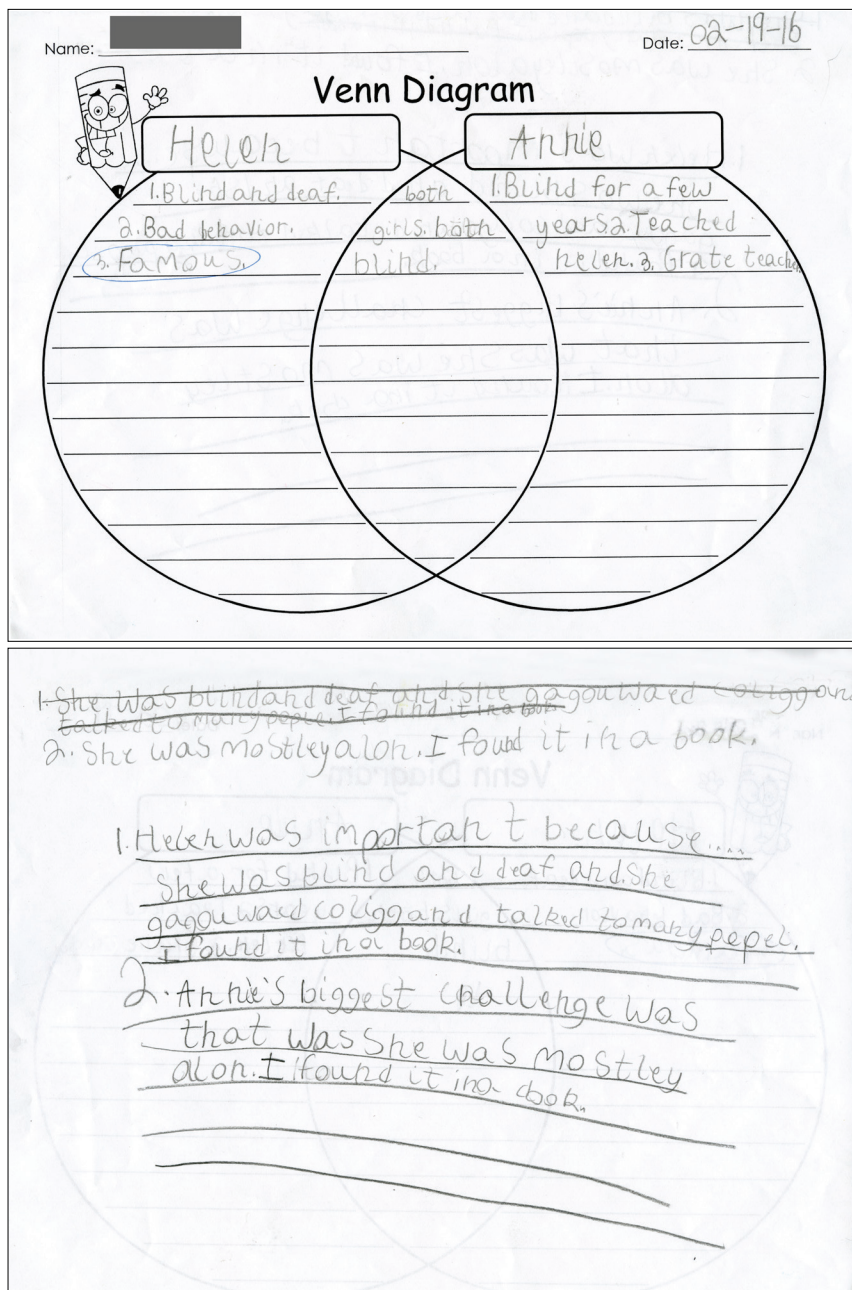 Name:
Date: 02-19-16
Venn Diagram
Helen
Annie
1.Blind and deaf.
2.Bad behavior.
3.Famous.
both
girls.both
blind.
1.Blind for a few
years2.Teached
helen.3.Grate teacher
1.She was blind and deaf and.She gagouwaed coligg and
talked to many pepie.I found it in a book
2.She was mostley alon.I found it in a book.
1.Helen was important because....
She was blind and deaf and.She
gagouwaed coligg and talked to many pepel.
I found it in a book.
2.Annie's biggest challenge was
that was She was mostley
alon.I found it in a book.